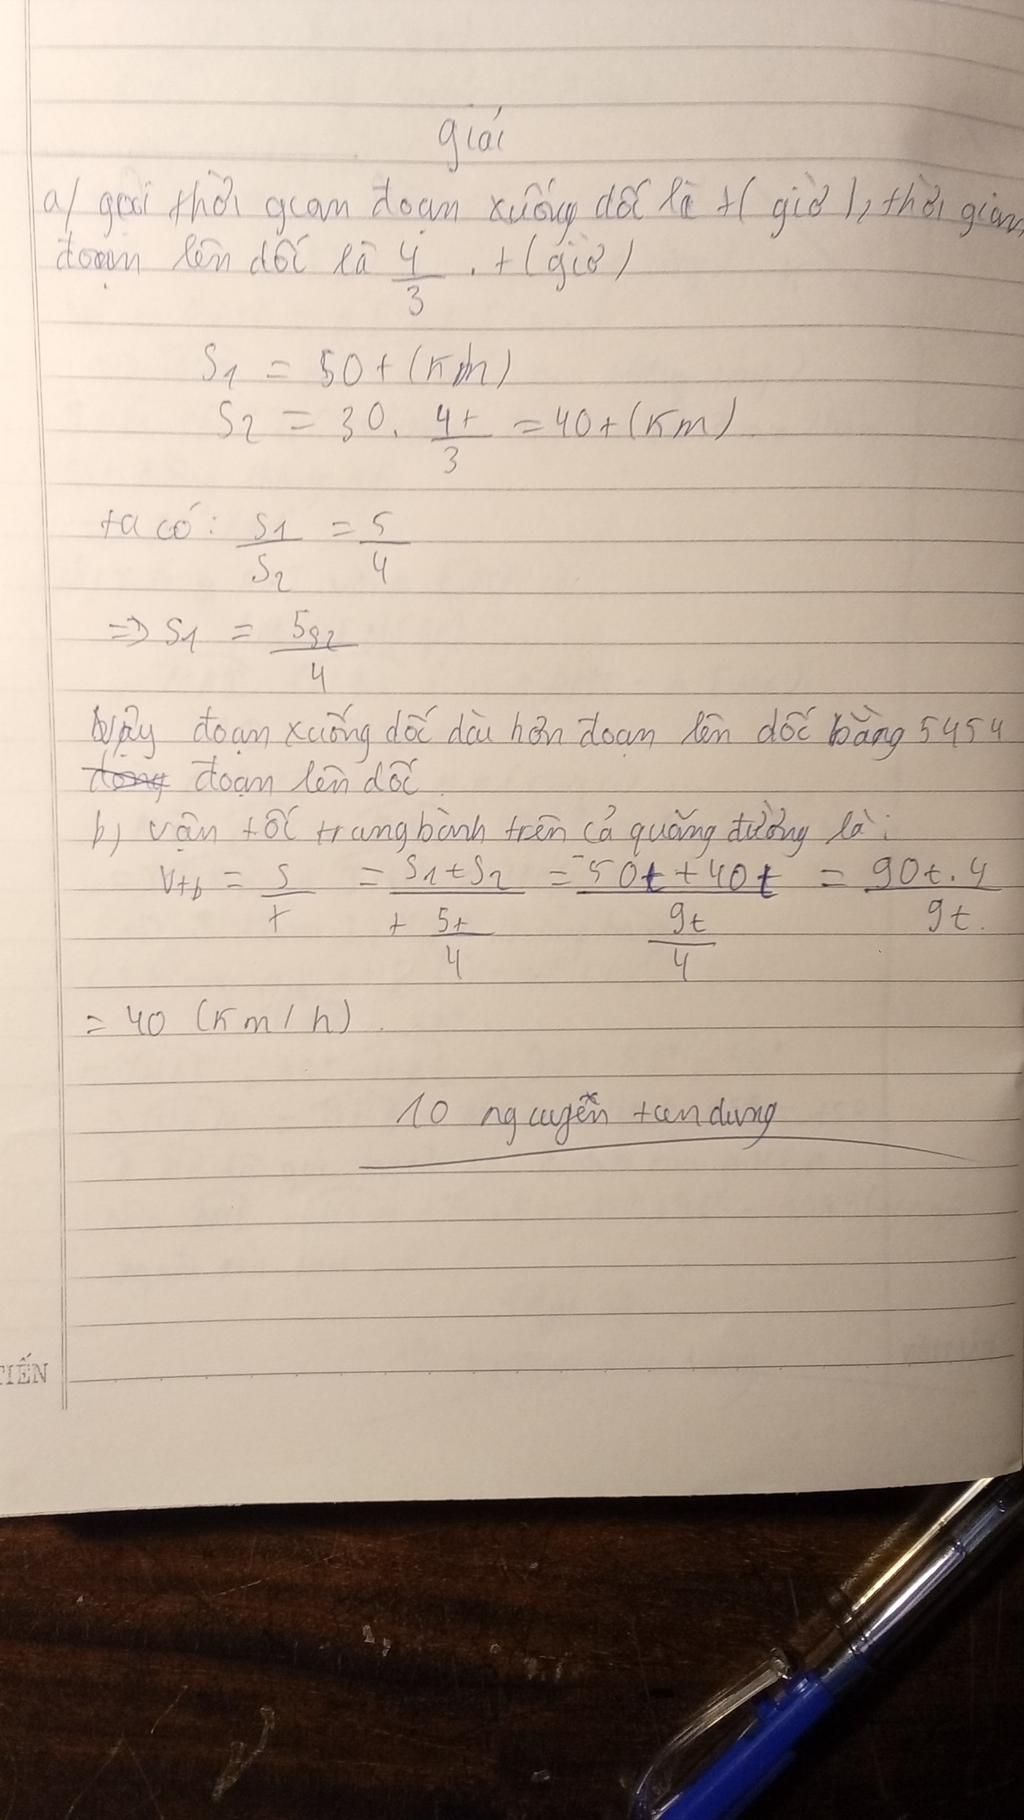 giải
a) gọi thời gian đoạn xuống dốc là t ( giờ ), thời gian
đoạn lên dốc là 4/3 . t (giờ)
S1 = 50t (Km)
S2 = 30. 4t/3 = 40t (Km)
ta có: S1/S2 = 5/4
=> S1 = 5S2/4
Vậy đoạn xuống dốc dài hơn đoạn lên dốc bằng 5454
đoạn lên dốc
b) vận tốc trung bình trên cả quãng đường là:
Vtb = S/t = S1+S2 / t 5t/4 = 50t+40t / 9t/4 = 90t.4 / 9t.
= 40 (Km/h)
10 nguyễn tan dung
TIẾN